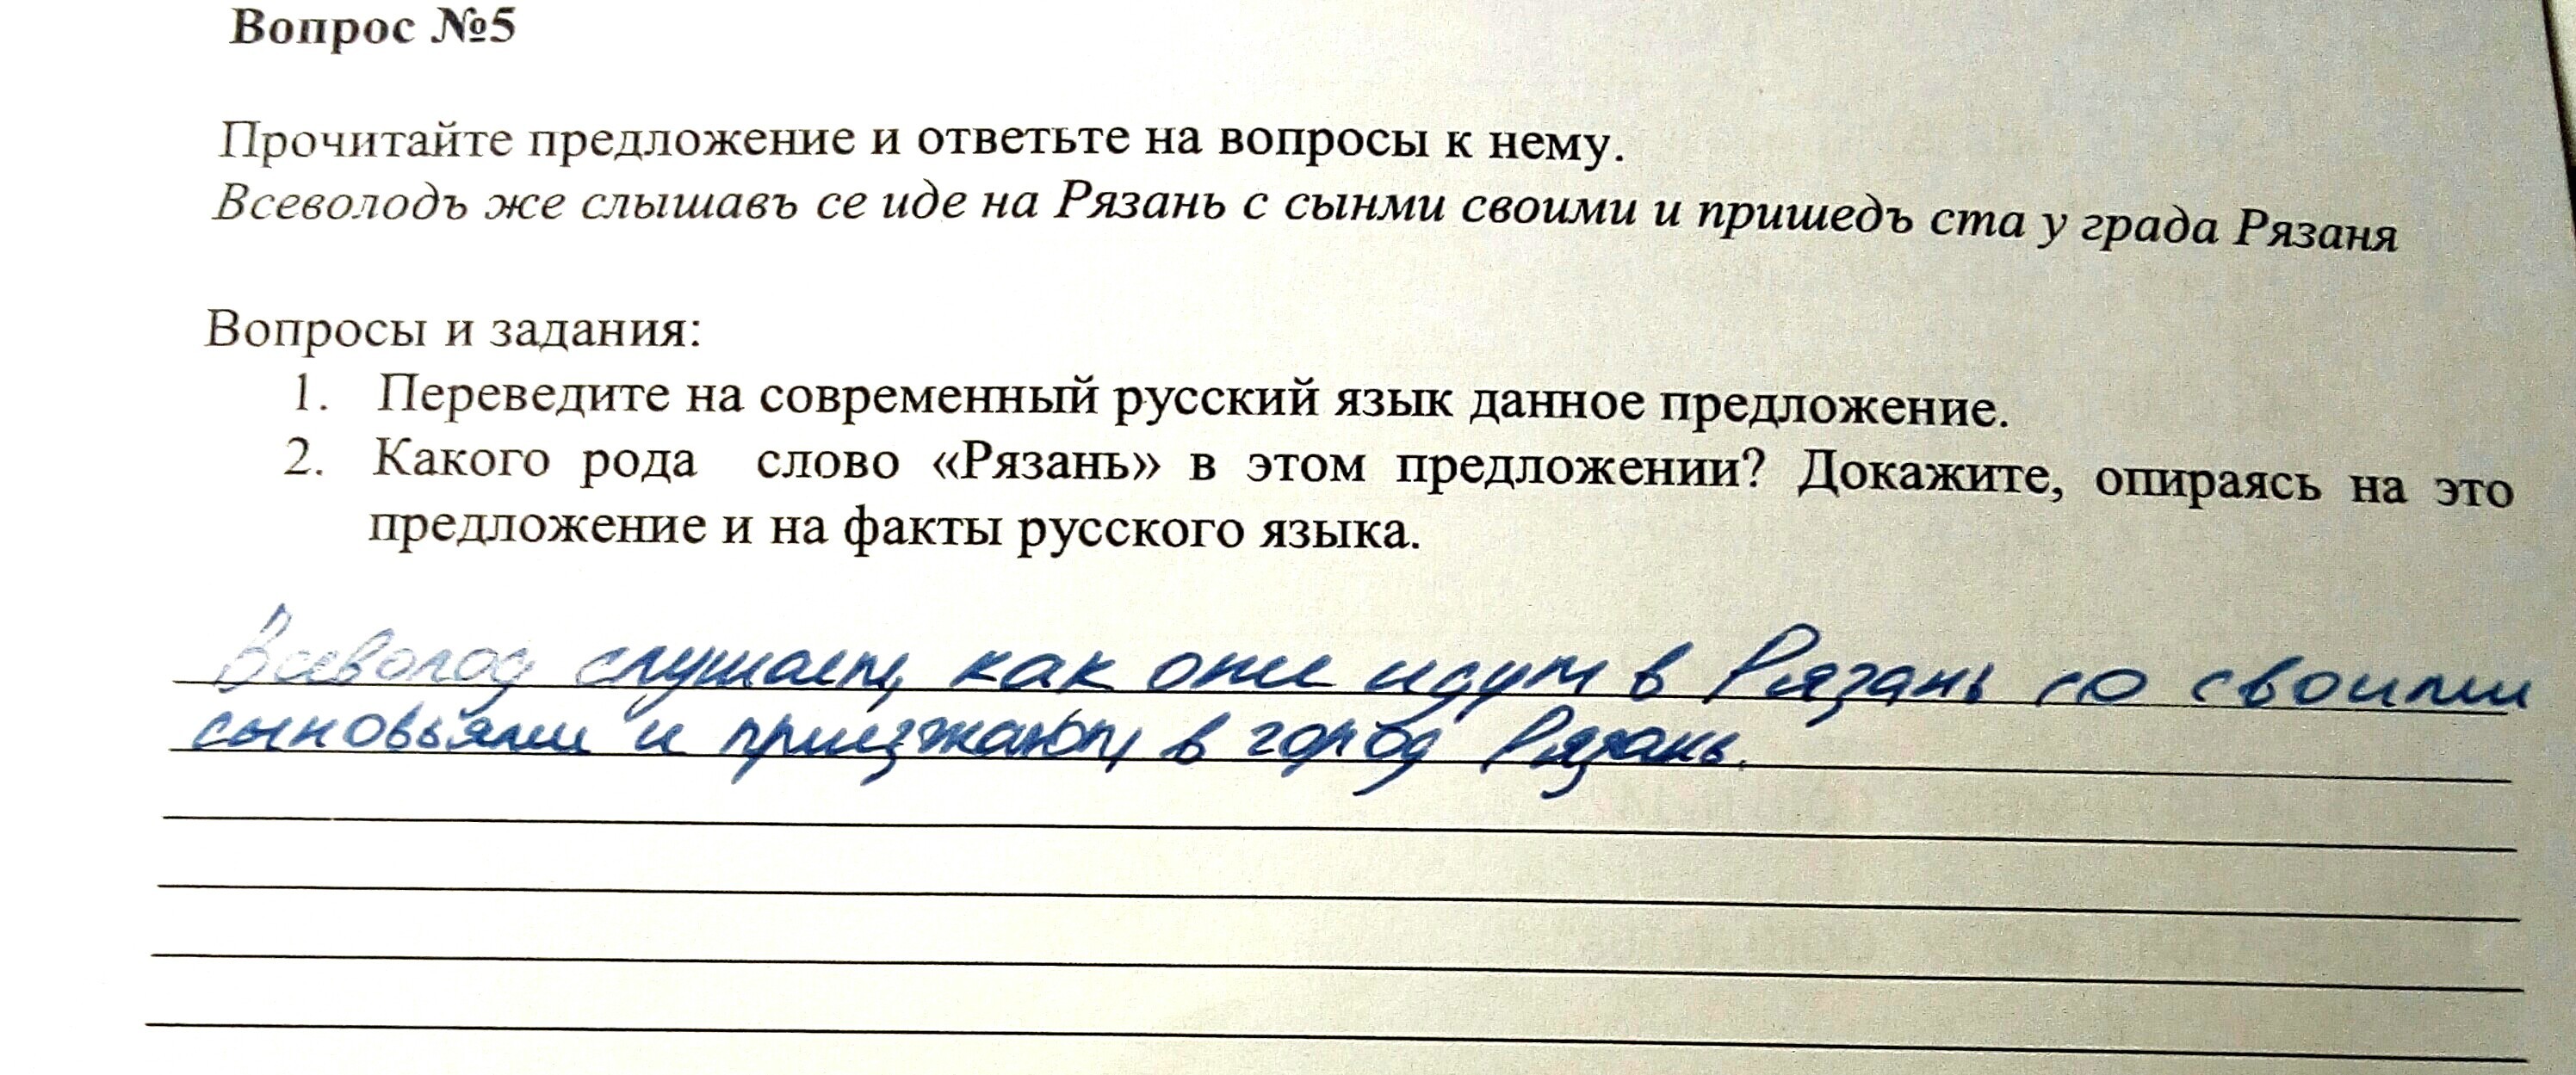 Вопрос №5
Прочитайте предложение и ответьте на вопросы к нему.
Всеволодъ же слышавъ се иде на Рязань с сынми своими и пришедъ ста у града Рязаня
Вопросы и задания:
1. Переведите на современный русский язык данное предложение.
2. Какого рода слово «Рязань» в этом предложении? Докажите, опираясь на это
предложение и на факты русского языка.
Всеволод слушает, как они идут в Рязань со своими
сыновьями и приезжают в город Рязань.